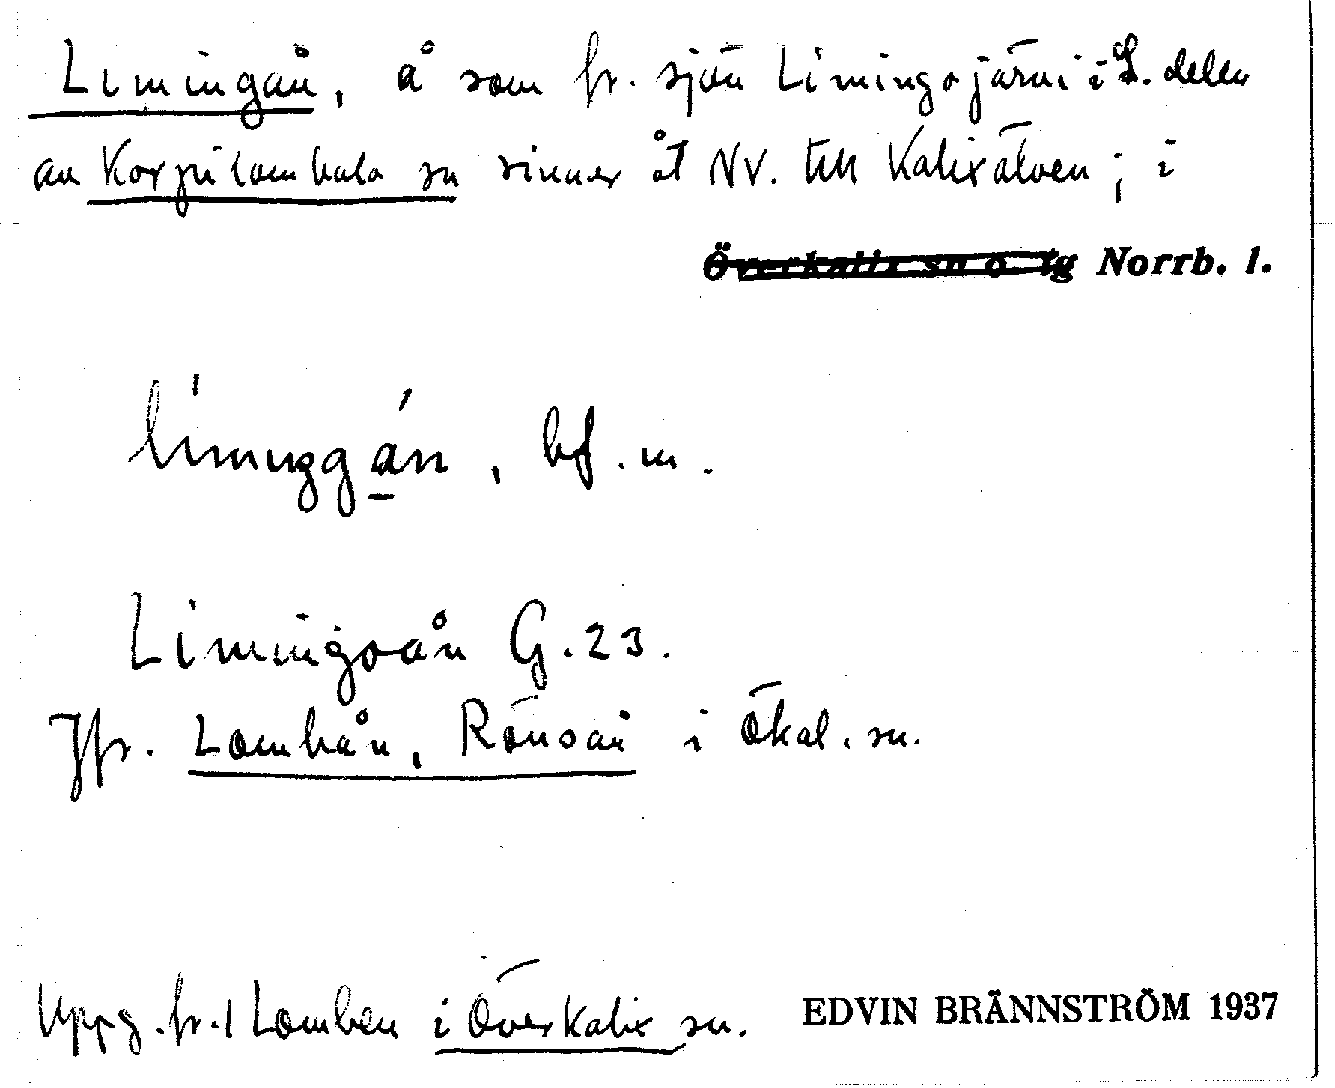 Limingån, å som fr. sjön Limingojärvi i S. delen
av Korpilombolo sn rinner åt NV. till Kalixälven; i
Överkalix sn o. tg Norrb. l.
bf. m.
Limingoån G. 23.
Jfr. Lombån, Rönsån i Ökal. sn.
Uppg. fr. Lomben i Överkalix sn. EDVIN BRÄNNSTRÖM 1937